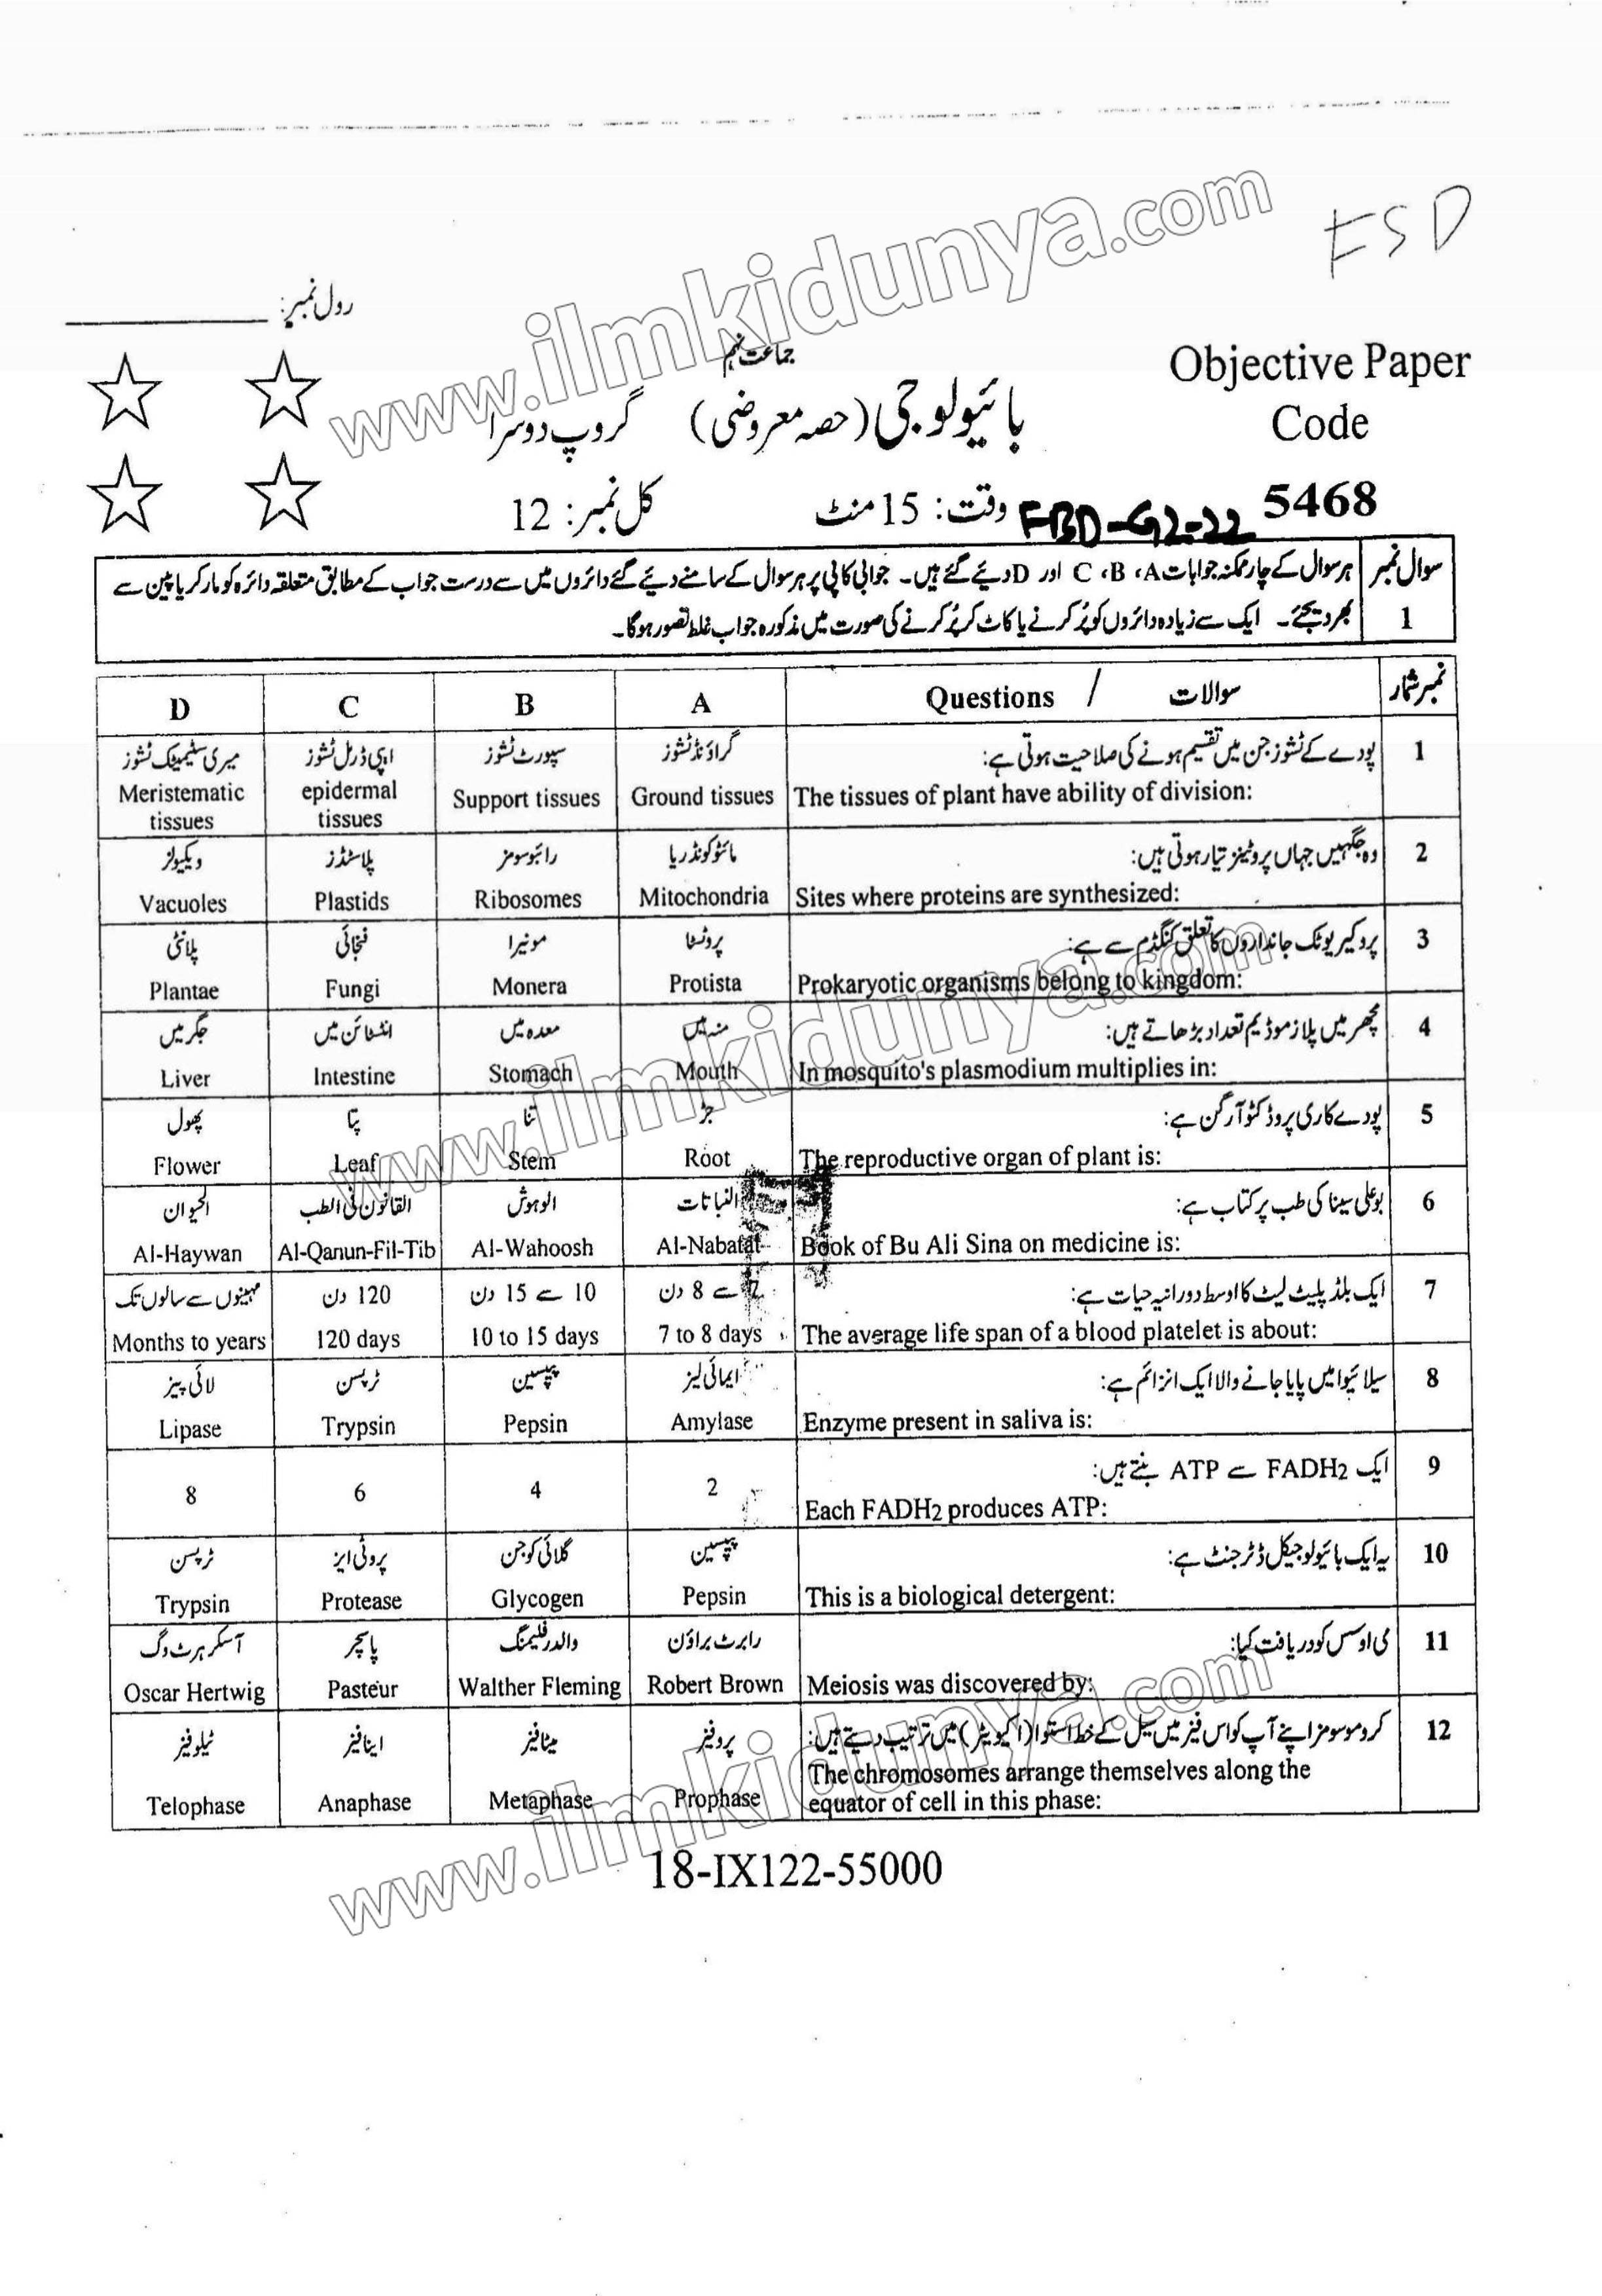 FSD
رول نمبر:
جماعت نہم
Objective Paper
Code
5468
بائیولوجی (حصہ معروضی) گروپ دوسرا
FBD-G2-22
وقت: 15 منٹ
کل نمبر: 12
سوال نمبر
1
ہر سوال کے چار ممکنہ جوابات A، B، C اور D دیئے گئے ہیں۔ جوابی کاپی پر ہر سوال کے سامنے دیئے گئے دائروں میں سے درست جواب کے مطابق متعلقہ دائرہ کو مارکر یا پین سے
بھر دیجئے۔ ایک سے زیادہ دائروں کو پُر کرنے یا کاٹ کر پُر کرنے کی صورت میں مذکورہ جواب غلط تصور ہوگا۔
نمبر شمار سوالات / Questions A B C D
1 پودے کے ٹشوز جن میں تقسیم ہونے کی صلاحیت ہوتی ہے: گراؤنڈ ٹشوز سپورٹ ٹشوز ایپی ڈرمل ٹشوز میری سٹیمیٹک ٹشوز
The tissues of plant have ability of division: Ground tissues Support tissues epidermal tissues Meristematic tissues
2 وہ جگہیں جہاں پروٹینز تیار ہوتی ہیں: مائٹوکونڈریا رائبوسومز پلاسٹڈز ویکیولز
Sites where proteins are synthesized: Mitochondria Ribosomes Plastids Vacuoles
3 پروکیریوٹک جانداروں کا تعلق کنگڈم سے ہے: پروٹسٹا مونیرا فنجائی پلانٹی
Prokaryotic organisms belong to kingdom: Protista Monera Fungi Plantae
4 مچھر میں پلازموڈیم تعداد بڑھاتے ہیں: منہ میں معدہ میں انٹسٹائن میں جگر میں
In mosquito's plasmodium multiplies in: Mouth Stomach Intestine Liver
5 پودے کا ری پروڈکٹو آرگن ہے: جڑ تنا پتا پھول
The reproductive organ of plant is: Root Stem Leaf Flower
6 بو علی سینا کی طب پر کتاب ہے: النباتات الوہوش القانون فی الطب الحیوان
Book of Bu Ali Sina on medicine is: Al-Nabatat Al-Wahoosh Al-Qanun-Fil-Tib Al-Haywan
7 ایک بلڈ پلیٹ لیٹ کا اوسط دورانیہ حیات ہے: 7 سے 8 دن 10 سے 15 دن 120 دن مہینوں سے سالوں تک
The average life span of a blood platelet is about: 7 to 8 days 10 to 15 days 120 days Months to years
8 سیلائیوا میں پایا جانے والا ایک انزائم ہے: ایمائی لیز پیپسین ٹرپسن لائی پیز
Enzyme present in saliva is: Amylase Pepsin Trypsin Lipase
9 ایک FADH2 سے ATP بنتے ہیں:
Each FADH2 produces ATP: 2 4 6 8
10 یہ ایک بائیولوجیکل ڈٹرجنٹ ہے: پیپسین گلائی کوجن پروٹی ایز ٹرپسن
This is a biological detergent: Pepsin Glycogen Protease Trypsin
11 می اوسس کو دریافت کیا: رابرٹ براؤن والدر فلیمنگ پاسچر آسکر ہرٹ وگ
Meiosis was discovered by: Robert Brown Walther Fleming Pasteur Oscar Hertwig
12 کروموسومز اپنے آپ کو اس فیز میں سیل کے خط استوا (اکیویٹر) میں ترتیب دیتے ہیں: پروفیز میٹافیز اینافیز ٹیلوفیز
The chromosomes arrange themselves along the
equator of cell in this phase: Prophase Metaphase Anaphase Telophase
18-IX122-55000
www.ilmkidunya.com
www.ilmkidunya.com
www.ilmkidunya.com